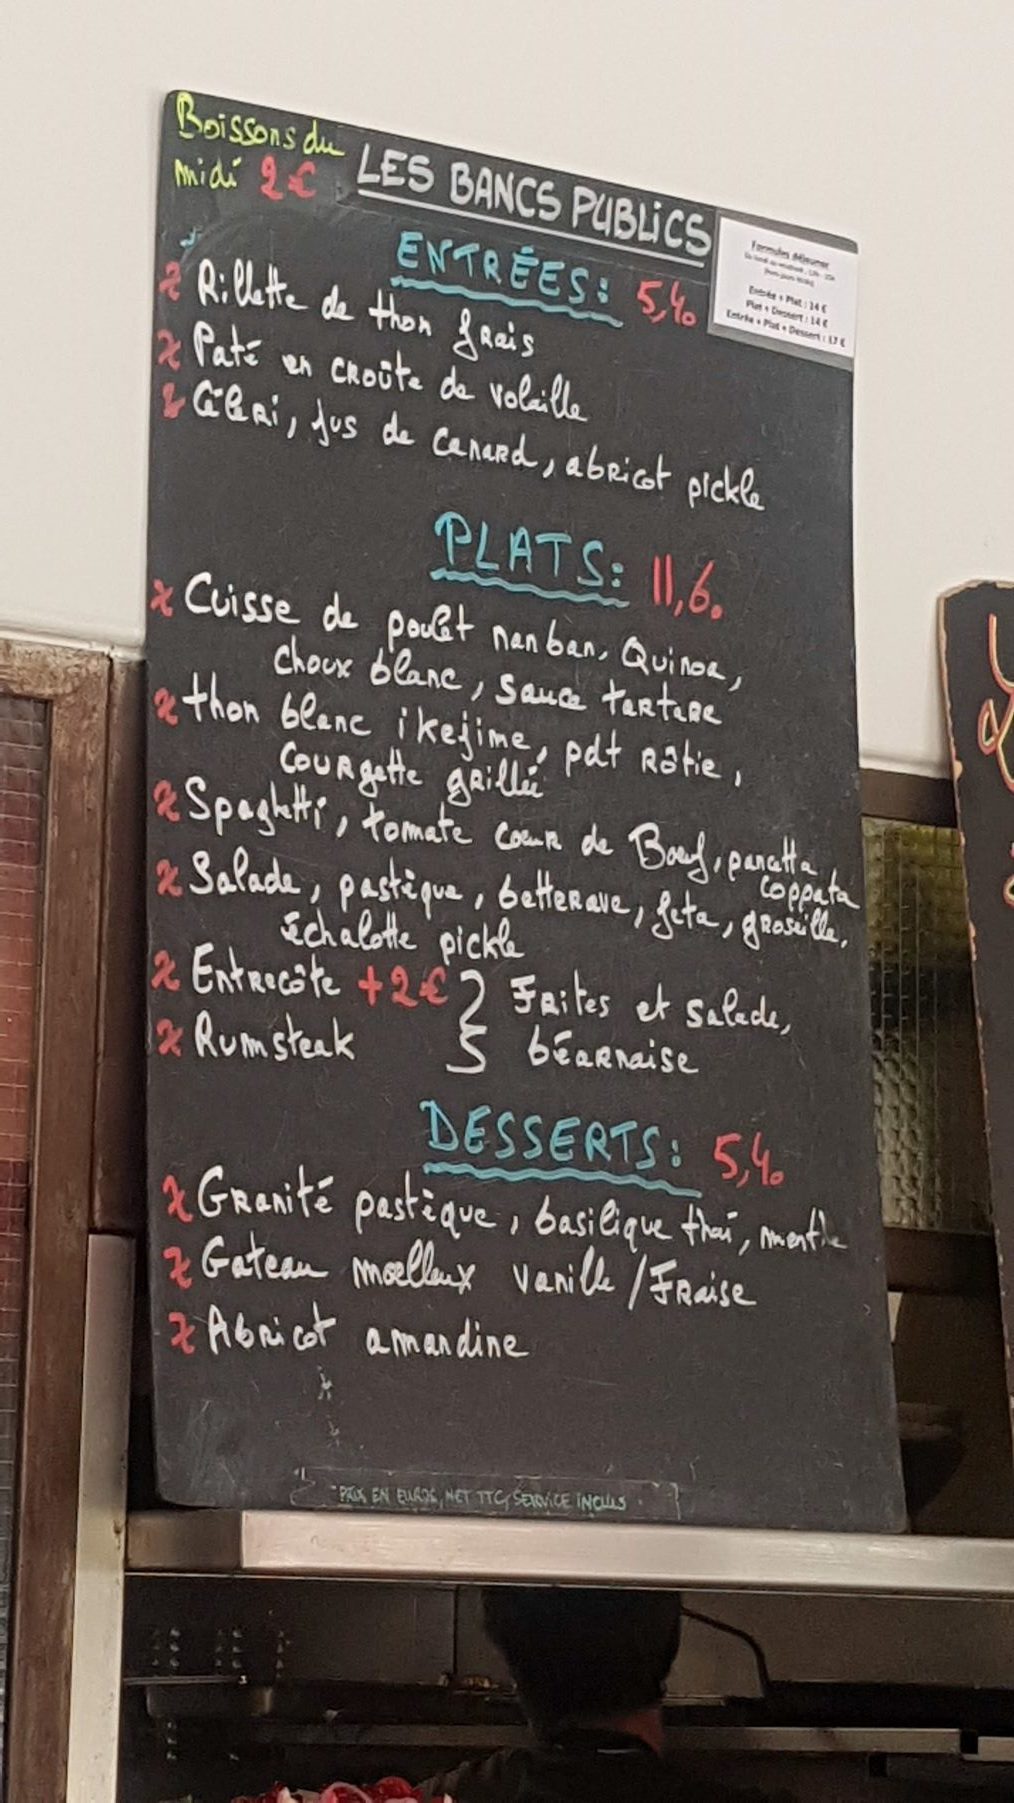 Boissons du
midi 2€
LES BANCS PUBLICS
Formules déjeuner
Entrée + Plat : 14 €
Plat + Dessert : 14 €
Entrée + Plat + Dessert : 17 €
ENTRÉES: 5,40
Rillette de thon frais
Paté en croûte de volaille
Céleri, jus de canard, abricot pickle
PLATS: 11,60
Cuisse de poulet nanban, Quinoa,
choux blanc, sauce tartare
thon blanc ikejime, pdt Râtie,
courgette grillée
Spaghetti, tomate coeur de Boeuf, pancetta
coppata
Salade, pastèque, betterave, feta, groseille,
échalotte pickle
Entrecôte +2€ } Frites et salade,
Rumsteak béarnaise
DESSERTS: 5,40
Granité pastèque, basilique thaï, menthe
Gateau moelleux vanille/Fraise
Abricot amandine
PRIX EN EUROS, NET TTC, SERVICE INCLUS